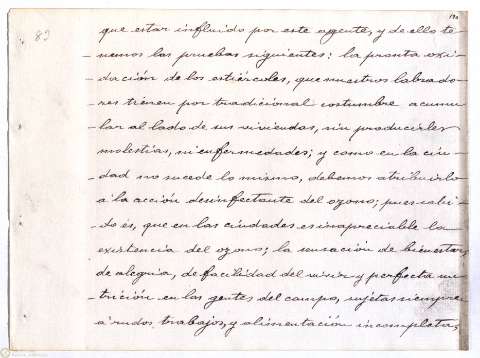 83
que estar influido por este agente, y de ello te-
nemos las pruebas siguientes: la pronta oxi-
dación de los estiércoles, que nuestros labrado-
res tienen por tradicional costumbre acumu-
lar al lado de sus viviendas, sin producirles
molestias, ni enfermedades; y como en la ciu-
dad no sucede lo mismo, debemos atribuirlo
a la acción desinfectante del ozono; pues sabi-
do es, que en las ciudades es inapreciable la
existencia del ozono; la sensación de bienestar,
de alegria, de facilidad del vivir y perfecta nu-
trición en las gentes del campo, sujetas siempre
á rudos trabajos, y alimentación incompleta,